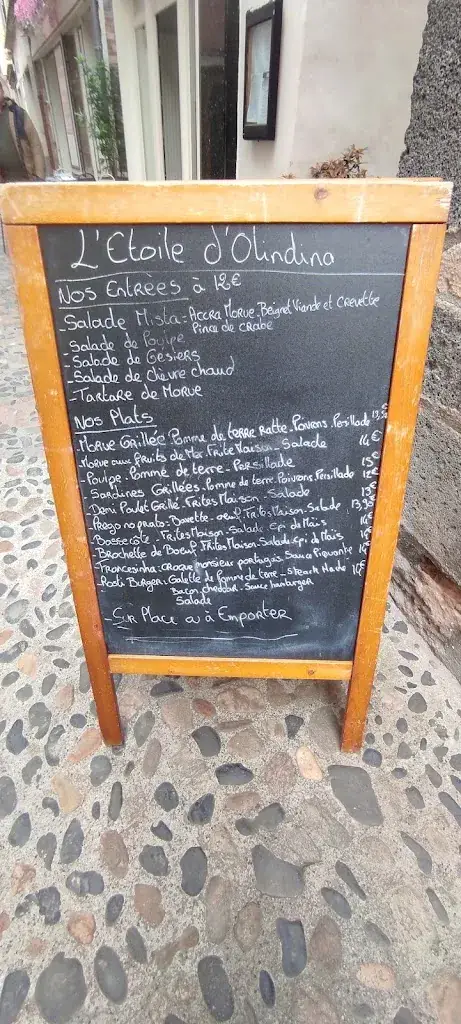 L'Etoile d'Olindina
Nos Entrèes à 12€
-Salade Mista: Accra Morue. Beignet Viande et Crevette
Pince de crabe
-Salade de Poulpe
-Salade de Gesiers
-Salade de Chèvre chaud
-Tartare de Morue
Nos Plats
-Morue Grillée Pomme de terre ratte. Poivrons. Persillade
-Morue aux fruits de Mer. Frite Maison - Salade 14€
-Poulpe - Pomme de terre - Persillade 15€
-Sardines Grillées. Pomme de terre. Poivrons. Persillade 12€
-Demi Poulet Grillé. Frites Maison - Salade 13€
-Prego no prato - Bavette - oeuf. Frites Maison. Salade
-Bassecôte. Frites Maison. Salade epi de Maïs
-Brochette de Boeuf. Frites Maison. Salade. epi de Maïs
-Francesinha: croque monsieur portugais. Sauce Piquante
-Rosti Burger: Galette de Pomme de terre - Steack Haché
Bacon. cheddar. Sauce hamburger
Salade
-Sur Place ou à Emporter